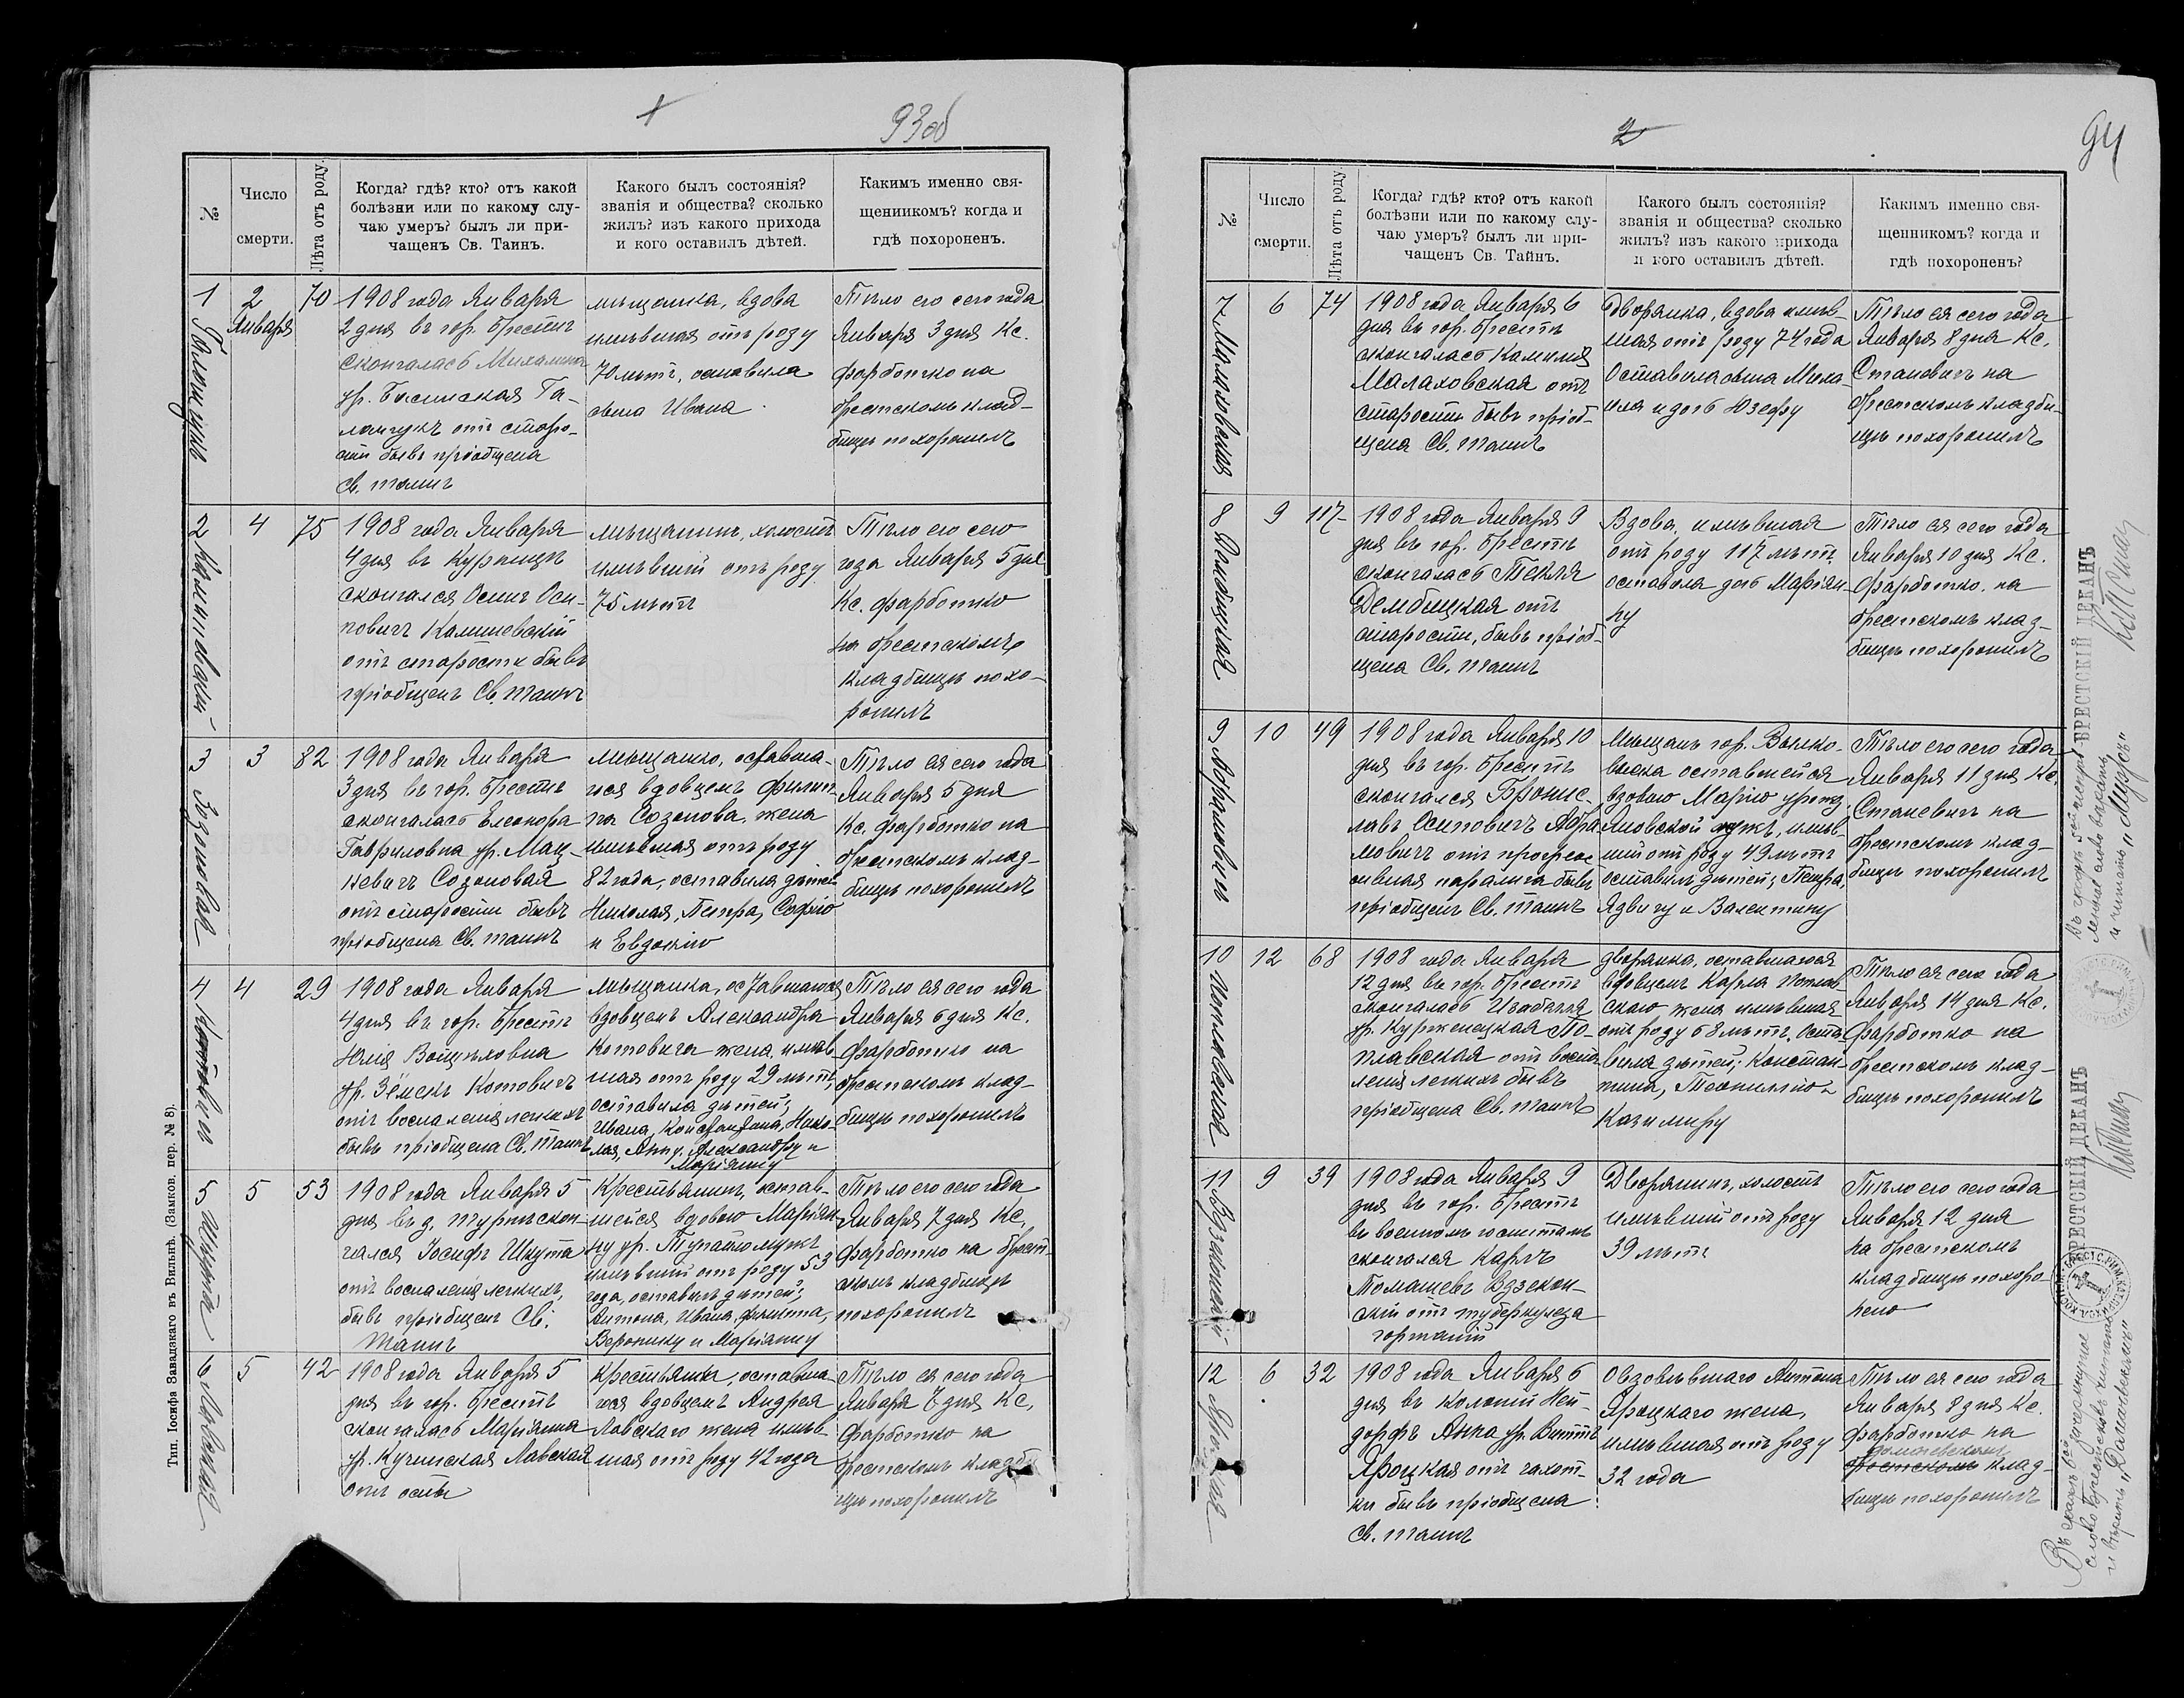 1
93об
№
Число
смерти.
Лѣта отъ роду.
Когда? гдѣ? кто? отъ какой
болѣзни или по какому слу-
чаю умеръ? былъ ли при-
чащенъ Св. Таинъ.
Какого былъ состоянія?
званія и общества? сколько
жилъ? изъ какого прихода
и кого оставилъ дѣтей.
Какимъ именно свя-
щенникомъ? когда и
гдѣ похороненъ.
1
2
Января
70
1908 года Января
2 дня въ гор. Брестѣ
скончалась Михалина
ур.
отъ старо-
сти бывъ пріобщена
Св. таинъ
мѣщанка, вдова
имѣвшая отъ роду
70 лѣтъ, оставила
сына Ивана
Тѣло его сего года
Января 3 дня Кс.
Фарботко на
брестскомъ клад-
бищѣ похоронилъ
2 Калишевскій
4
75
1908 года Января
4 дня въ Курницѣ
скончался Осипъ Оси-
повичъ Калишевскій
отъ старости бывъ
пріобщенъ Св. таинъ
мѣщанинъ, холостъ
имѣвшій отъ роду
75 лѣтъ
Тѣло его сего
года Января 5 дня
Кс. Фарботко
на брестскомъ
кладбищѣ похо-
ронилъ
3 Созоновая
3
82
1908 года Января
3 дня въ гор. Брестѣ
скончалась Елеонора
Гавриловна ур. Мац-
кевичъ Созоновая
отъ старости бывъ
пріобщена Св. таинъ
мѣщанка, оставша-
гося вдовцемъ Филип-
па Созонова, жена
имѣвшая отъ роду
82 года, оставила дѣтей
Николая, Петра, Софію
и Евдокію
Тѣло ея сего года
Января 5 дня
Кс. Фарботко на
брестскомъ клад-
бищѣ похоронилъ
4 Котовичъ
4
29
1908 года Января
4 дня въ гор. Брестѣ
Юлія Войцѣховна
ур. Зёмекъ Котовичъ
отъ воспаленія легкихъ
бывъ пріобщена Св. Таинъ
мѣщанка, оставшагося
вдовцемъ Александра
Котовича жена, имѣв-
шая отъ роду 29 лѣтъ,
оставила дѣтей;
Ивана, Константина, Нико-
лая, Анну, Александру и
Маріанну
Тѣло ея сего года
Января 6 дня Кс.
Фарботко на
брестскомъ клад-
бищѣ похоронилъ
5 Шкута
5
53
1908 года Января 5
дня въ д. скон-
чался Іосифъ Шкута
отъ воспаленія легкихъ,
бывъ пріобщенъ Св.
Таинъ
Крестьянинъ, остав-
шейся вдовою Маріан-
ну ур. мужъ
имѣвшій отъ роду 53
года, оставилъ дѣтей;
Антона, Ивана,
Веронику и Маріанну
Тѣло его сего года
Января 7 дня Кс.
Фарботко на брест-
скомъ кладбищѣ
похоронилъ
6 Лавская
5
42
1908 года Января 5
дня въ гор. Брестѣ
скончалась Маріанна
ур. Кучинская Лавская
отъ оспы
Крестьянка, оставша-
гося вдовцемъ Андрея
Лавскаго жена имѣв-
шая отъ роду 42 года
Тѣло ея сего года
Января 7 дня Кс.
Фарботко на
брестскомъ кладби-
щѣ похоронилъ
Тип. Іосифа Завадзкаго въ Вильнѣ. (Замков. пер. № 8).
2
94
№
Число
смерти.
Лѣта отъ роду.
Когда? гдѣ? кто? отъ какой
болѣзни или по какому слу-
чаю умеръ? былъ ли при-
чащенъ Св. Тайнъ.
Какого былъ состоянія?
званія и общества? сколько
жилъ? изъ какого прихода
и кого оставилъ дѣтей.
Какимъ именно свя-
щенникомъ? когда и
гдѣ похороненъ?
7 Малаховская
6
74
1908 года Января 6
дня въ гор. Брестѣ
скончалась Камилія
Малаховская отъ
старости бывъ пріоб-
щена Св. таинъ
Дворянка, вдова имѣв-
шая отъ роду 74 года
Оставила сына Миха-
ила и дочь Юзефу
Тѣло ея сего года
Января 8 дня Кс.
Станевичъ на
брестскомъ кладби-
щѣ похоронилъ
8 Дембицкая
9
117
1908 года Января 9
дня въ гор. Брестѣ
скончалась Текля
Дембицкая отъ
старости, бывъ пріоб-
щена Св. таинъ
Вдова, имѣвшая
отъ роду 117 лѣтъ
оставила дочь Маріан-
ну
Тѣло ея сего года
Января 10 дня Кс.
Фарботко на
брестскомъ клад-
бищѣ похоронилъ
9 Абрамовичъ
10
49
1908 года Января 10
дня въ гор. Брестѣ
скончался Брониc-
лавъ Осиповичъ Абра-
мовичъ отъ прогрес-
сивная паралича бывъ
пріобщенъ Св. таинъ
Мѣщанъ гор. Волко-
выска оставшейся
вдовою Марію урожд.
мужъ, имѣв-
шій отъ роду 49 лѣтъ
оставилъ дѣтей; Петра,
Ядвигу и Валентину
Тѣло его сего года
Января 11 дня Кс.
Станевичъ на
брестскомъ клад-
бищѣ похоронилъ
10 Поплавская
12
68
1908 года Января
12 дня въ гор. Брестѣ
скончалась Изабелла
ур. Курженецкая По-
плавская отъ воспа-
ленія легкихъ бывъ
пріобщена Св. таинъ
дворянка, оставшагося
вдовцемъ Карла Поплав-
скаго жена имѣвшая
отъ роду 68 лѣтъ. Оста-
вила дѣтей; Констан-
тина, Теофилію и
Казимиру
Тѣло ея сего года
Января 14 дня Кс.
Фарботко на
брестскомъ клад-
бищѣ похоронилъ
11
9
39
1908 года Января 9
дня въ гор. Брестѣ
въ военномъ госпиталѣ
скончался Карлъ
Томашевъ
отъ туберкулеза
гортаній
Дворянинъ, холостъ
имѣвшій отъ роду
39 лѣтъ
Тѣло его сего года
Января 12 дня
на брестскомъ
кладбищѣ похоро-
нено
12 Яроцкая
6
32
1908 года Января 6
дня въ колоніи Ней-
дорфъ Анна ур. Виттъ
Яроцкая отъ чахот-
ки бывъ пріобщена
Св. таинъ
Овдовѣвшаго Антона
Яроцкаго жена,
имѣвшая отъ роду
32 года
Тѣло ея сего года
Января 8 дня Кс.
Фарботко на
домачевскомъ
брестскомъ клад-
бищѣ похоронилъ
БРЕСТСКІЙ ДЕКАНЪ
и читать „Мужъ“
БРЕСТСКІЙ ДЕКАНЪ
Въ скалѣ 6ой зачеркнутое
слово брестскомъ читать
и вѣрить „Домачевскомъ“